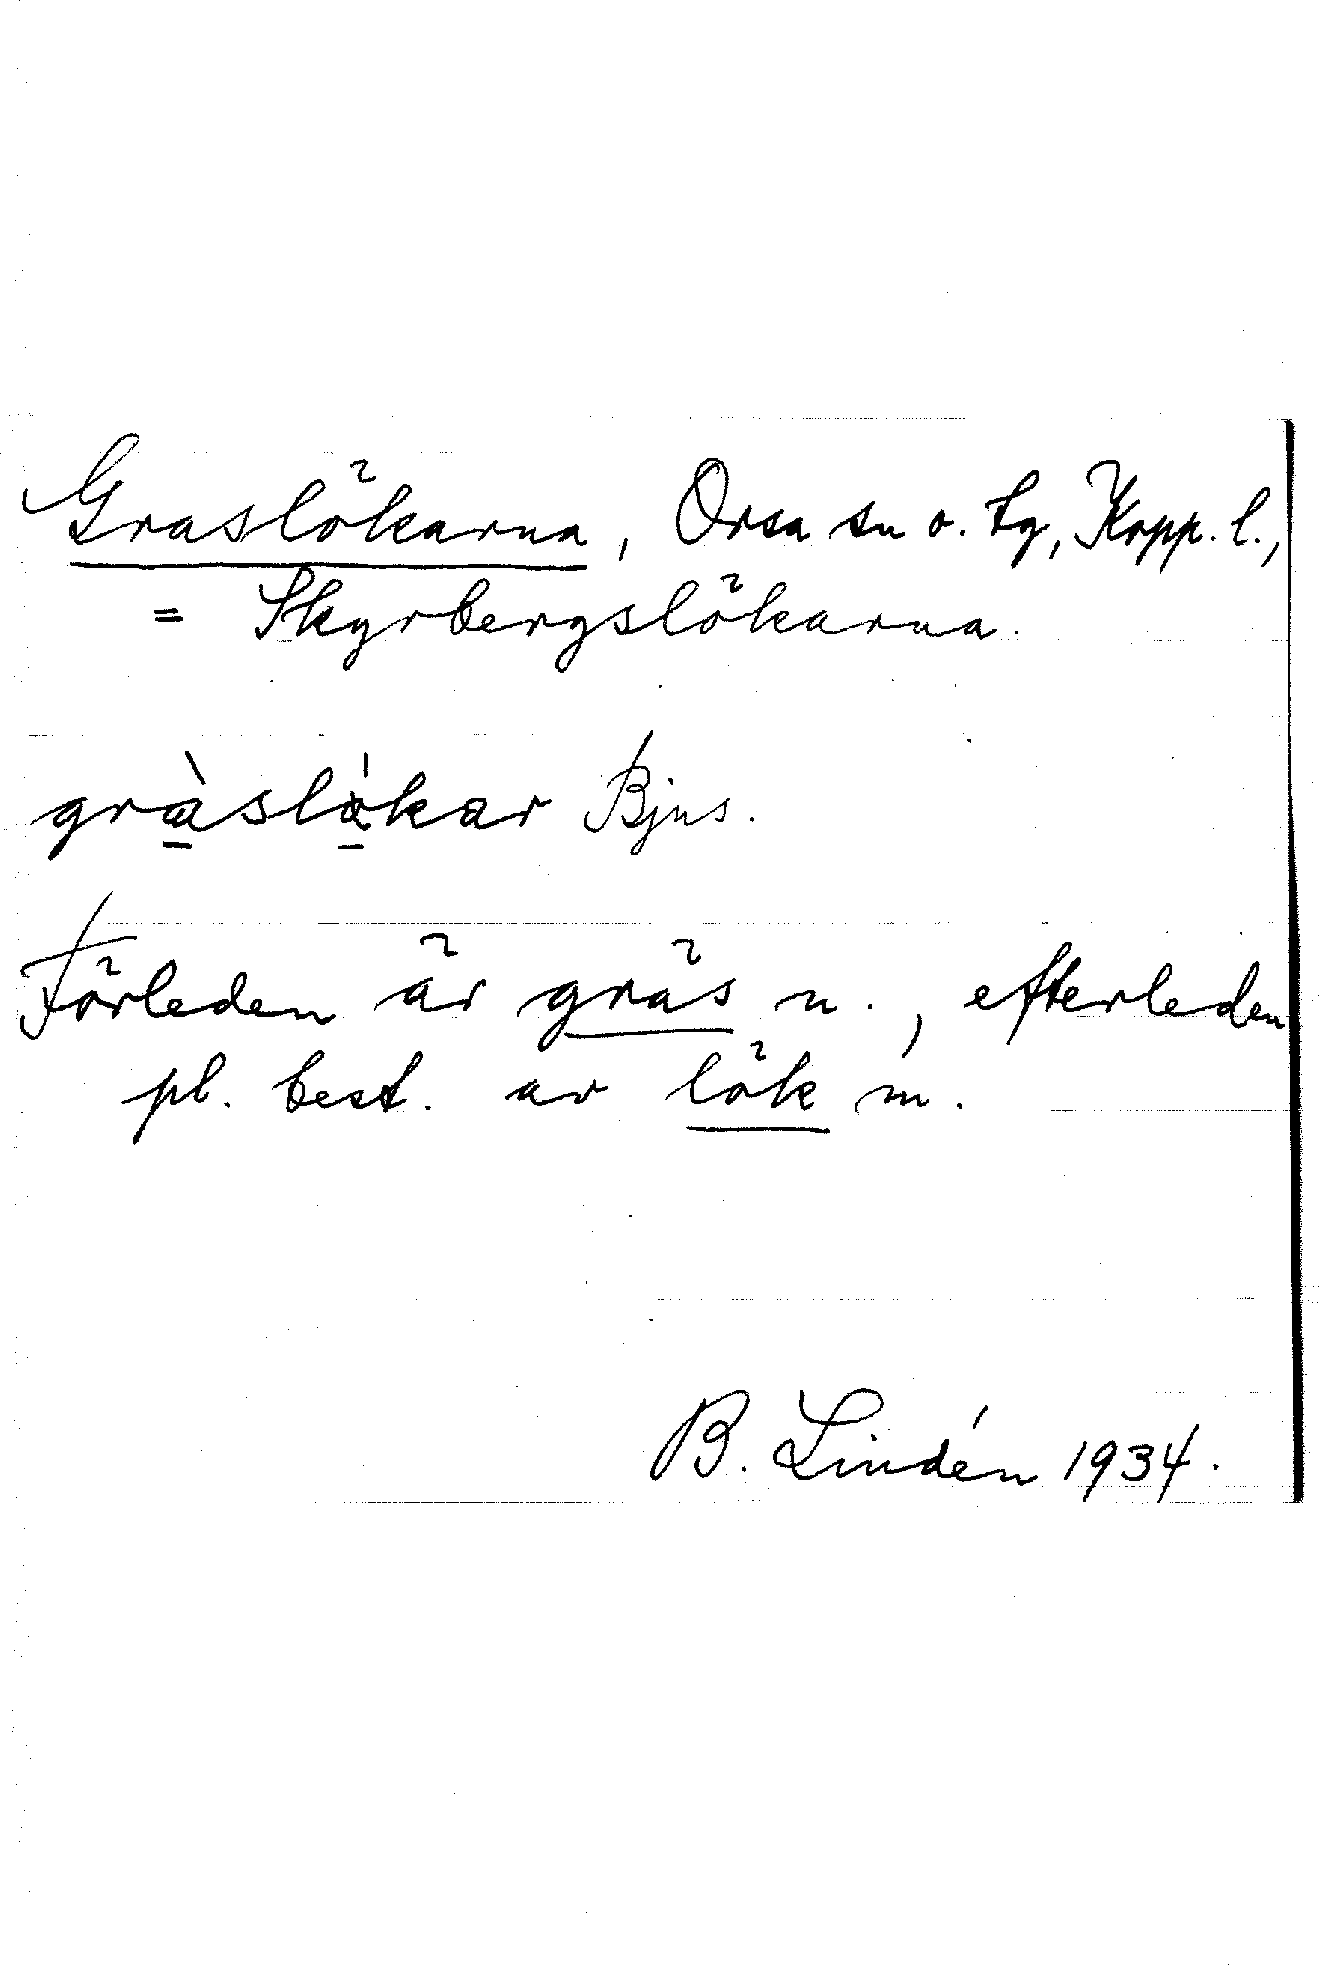 Graslökarna, Orsa sn o. tg, Kopp. l.,
= Skyrbergslökarna.
gràslò̀kar Bjus.
Förleden är gräs n., efterleden
pl. best. av lök m.
B. Lindén 1934.